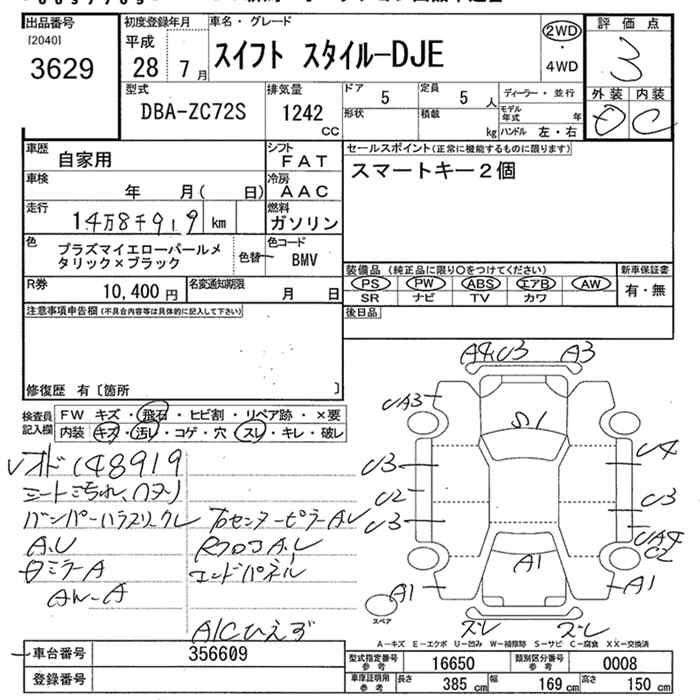 出品番号
[2040]
3629
初度登録年月
平成
28 7月
車名・グレード
スイフト スタイル-DJE
2WD
・
4WD
評価点
3
外装 内装
D C
型式
DBA-ZC72S
排気量
1242
CC
ドア
5
定員
5 人
形状
積載
kg
ディーラー・並行
モデル年式 年
ハンドル 左・右
車歴
自家用
シフト
FAT
セールスポイント(正常に機能するものに限ります)
スマートキー2個
車検
年 月( 日)
冷房
AAC
走行
14万8千919 km
燃料
ガソリン
色
プラズマイエローパールメ
タリック×ブラック
色替
色コード
BMV
R券
10,400 円
名変通知期限
月 日
装備品(純正品に限り○をつけてください)
PS PW ABS エアB AW
SR ナビ TV カワ
新車保証書
有・無
後日品
注意事項申告欄(不具合内容等は具体的に記入して下さい)
修復歴 有〔箇所 〕
検査員
記入欄
FW キズ・飛石・ヒビ割・リペア跡・×要
内装 キズ・汚レ・コゲ・穴・スレ・キレ・破レ
オド148919
シートよごれ、
A.U
ミラーA
センターピラーA.U
A.U
エンドパネル
A/Cひえず
A4 U3 A3
UA3
S1
U3
U2
U3
U4
U3
UA4
U2
A1
A1
A1
ズレ ズレ
スペア
A-キズ E-エクボ U-凹み W-補修跡 S-サビ C-腐食 XX-交換済
車台番号
356609
登録番号
型式指定番号
参考
16650
類別区分番号
参考
0008
車庫証明用
参考
長さ 385 cm
幅 169 cm
高さ 150 cm